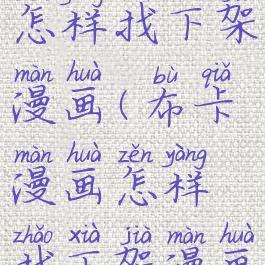 怎样找下架
màn huà bù qiǎ
漫画(布卡
màn huà zěn yàng
漫画怎样
zhǎo xià jià màn huà
找下架漫画